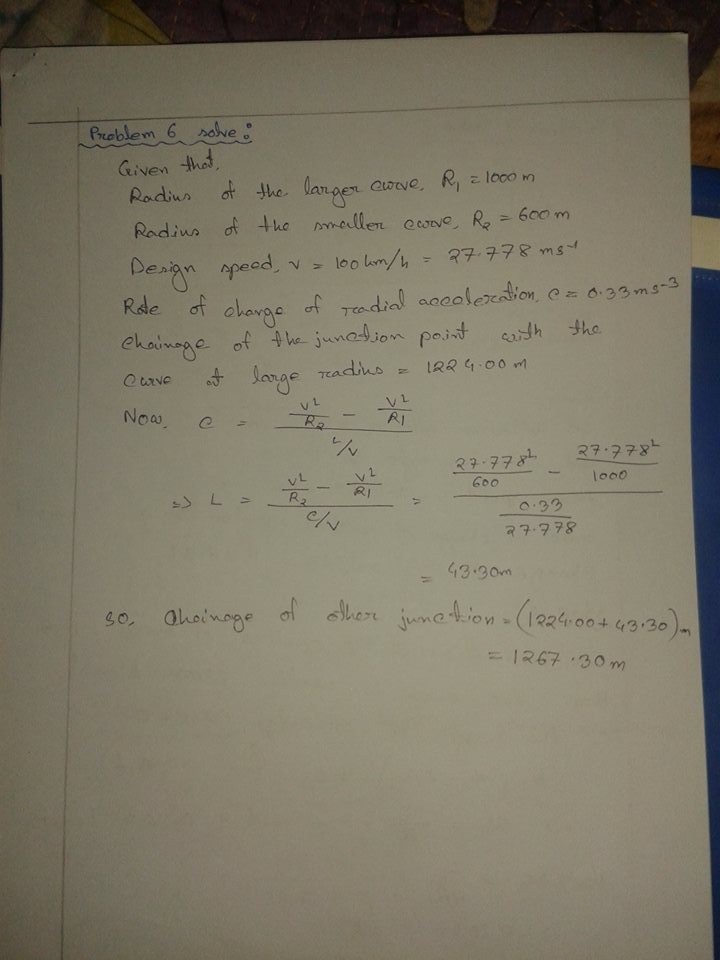 Problem 6 solve:
Given that,
Radius of the larger curve, R₁ = 1000 m
Radius of the smaller curve, R₂ = 600 m
Design speed, v = 100 km/h = 27.778 ms⁻¹
Rate of change of radial acceleration, c = 0.33 ms⁻³
Chainage of the junction point with the
curve of large radius = 1224.00 m
Now, c = (v²/R₂ - v²/R₁) / (L/v)
=> L = (v²/R₂ - v²/R₁) / (c/v) = (27.778²/600 - 27.778²/1000) / (0.33/27.778)
= 43.30m
So, Chainage of other junction = (1224.00 + 43.30) m
= 1267.30 m